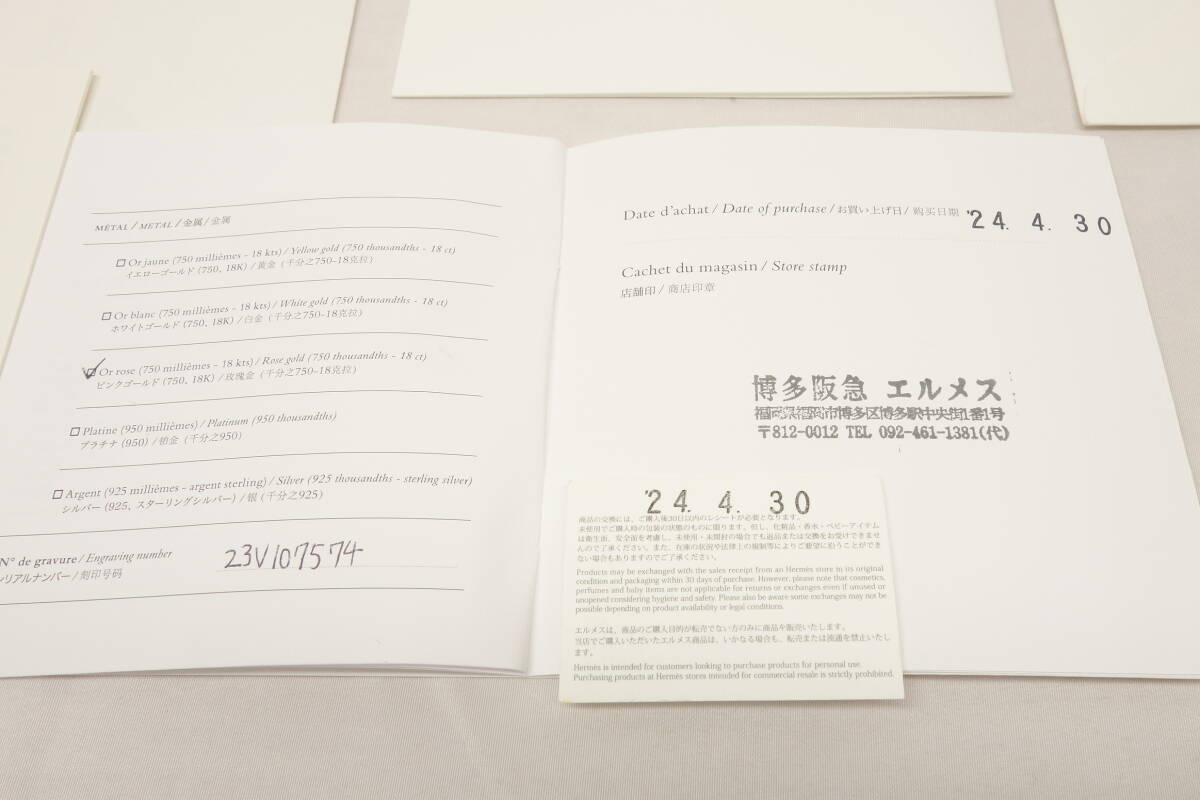 MÉTAL / METAL / 金属 / 金属
Or jaune (750 millièmes - 18 kts) / Yellow gold (750 thousandths - 18 ct)
イエローゴールド (750, 18K) / 黄金 (千分之750-18克拉)
Or blanc (750 millièmes - 18 kts) / White gold (750 thousandths - 18 ct)
ホワイトゴールド (750, 18K) / 白金 (千分之750-18克拉)
Or rose (750 millièmes - 18 kts) / Rose gold (750 thousandths - 18 ct)
ピンクゴールド (750, 18K) / 玫瑰金 (千分之750-18克拉)
Platine (950 millièmes) / Platinum (950 thousandths)
プラチナ (950) / 铂金 (千分之950)
Argent (925 millièmes - argent sterling) / Silver (925 thousandths - sterling silver)
シルバー (925, スターリングシルバー) / 银 (千分之925)
N° de gravure / Engraving number 23V107574
シリアルナンバー / 刻印号码
Date d'achat / Date of purchase / お買い上げ日 / 购买日期 '24. 4. 30
Cachet du magasin / Store stamp
店舗印 / 商店印章
博多阪急 エルメス
福岡県福岡市博多区博多駅中央街1番1号
〒812-0012 TEL 092-461-1381(代)
'24. 4. 30
商品の交換には、ご購入後30日以内のレシートが必要となります。
未使用でご購入時の包装の状態のものに限ります。但し、化粧品・香水・ベビーアイテム
は衛生面、安全面を考慮し、未使用・未開封の場合でも返品または交換をお受けできませ
んのでご了承ください。また、在庫の状況や法律上の規制等によりご要望に沿うことができ
ない場合もありますのでご了承ください。
Products may be exchanged with the sales receipt from an Hermès store in its original
condition and packaging within 30 days of purchase. However, please note that cosmetics,
perfumes and baby items are not applicable for returns or exchanges even if unused or
unopened considering hygiene and safety. Please also be aware some exchanges may not be
possible depending on product availability or legal conditions.
エルメスは、商品のご購入目的が転売でない方のみに商品を販売いたします。
当店でご購入いただいたエルメス商品は、いかなる場合も、転売または流通を禁止いたし
ます。
Hermès is intended for customers looking to purchase products for personal use.
Purchasing products at Hermès stores intended for commercial resale is strictly prohibited.